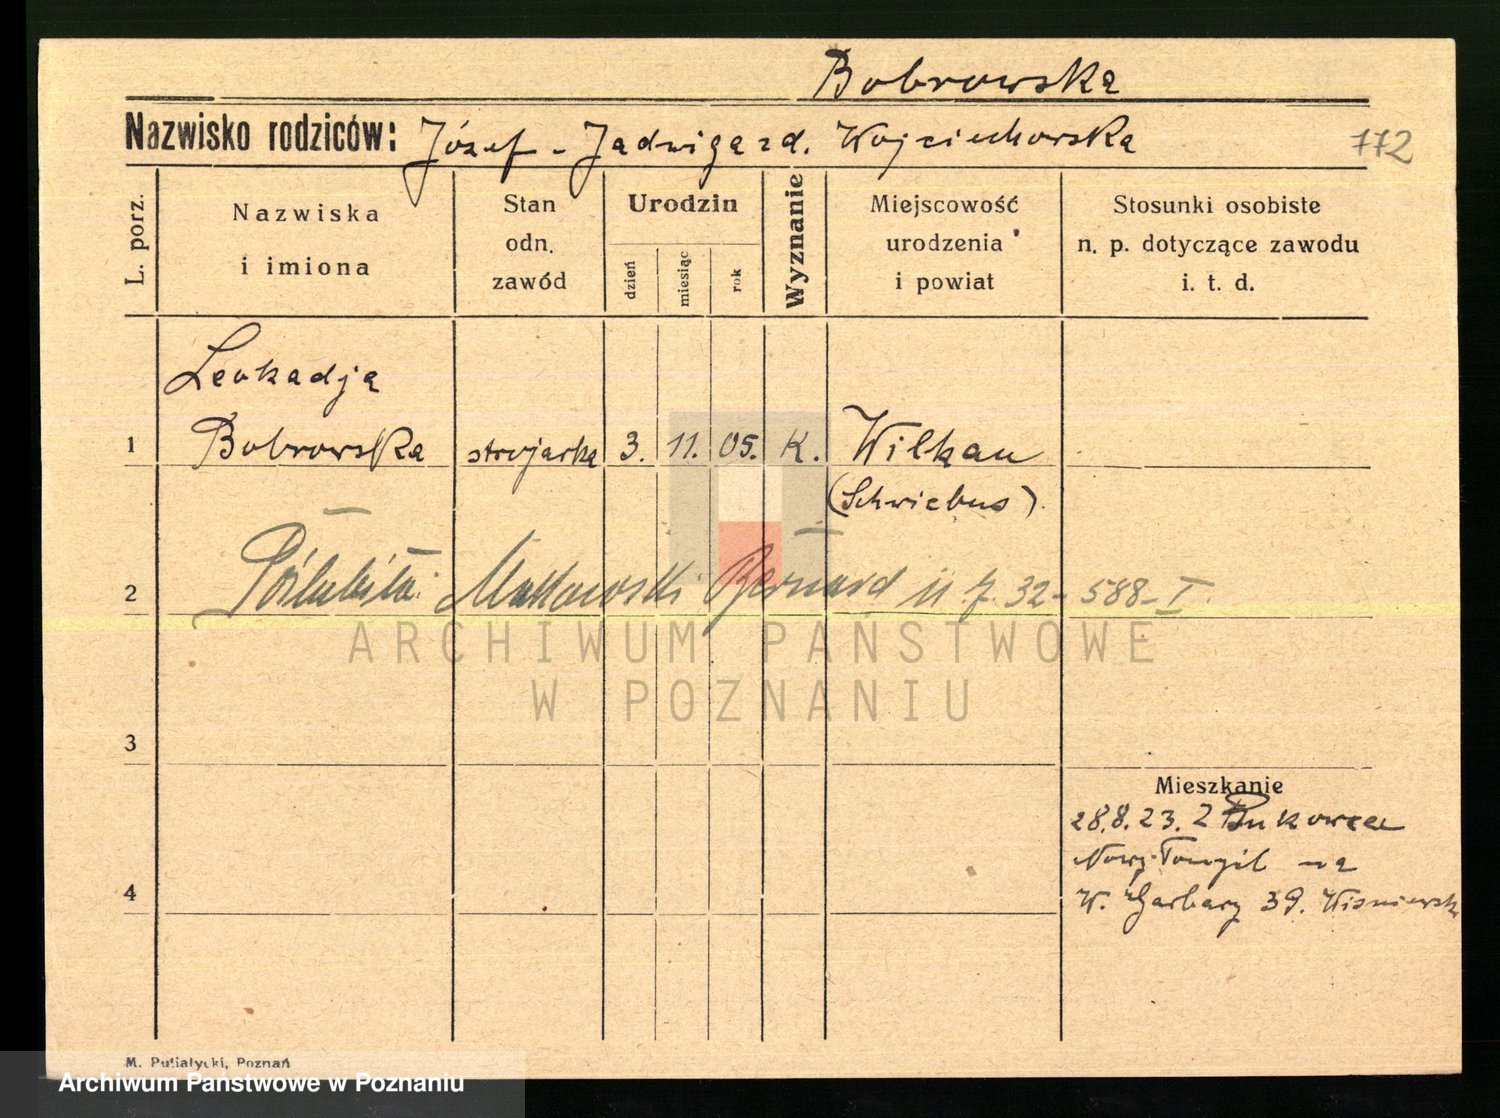 Bobrowska
Nazwisko rodziców: Józef - Jadwiga zd. Wojciechowska
772
L. porz.
Nazwiska
i imiona
Stan
odn.
zawód
Urodzin
dzień
miesiąc
rok
Wyznanie
Miejscowość
urodzenia
i powiat
Stosunki osobiste
n. p. dotyczące zawodu
i. t. d.
Leokadja
1 Bobrowska strojarka 3. 11. 05. K. Wilkau
(Schwiebus).
2 Poślubiła: Makowski Bernard 7. 32 - 588 - I
ARCHIWUM PAŃSTWOWE
W POZNANIU
3
Mieszkanie
28.8.23. Z Bukowca
Nowy-Tomyśl na
4 W. Garbary 39. Wiśniewsk
M. Putiatycki, Poznań
Archiwum Państwowe w Poznaniu